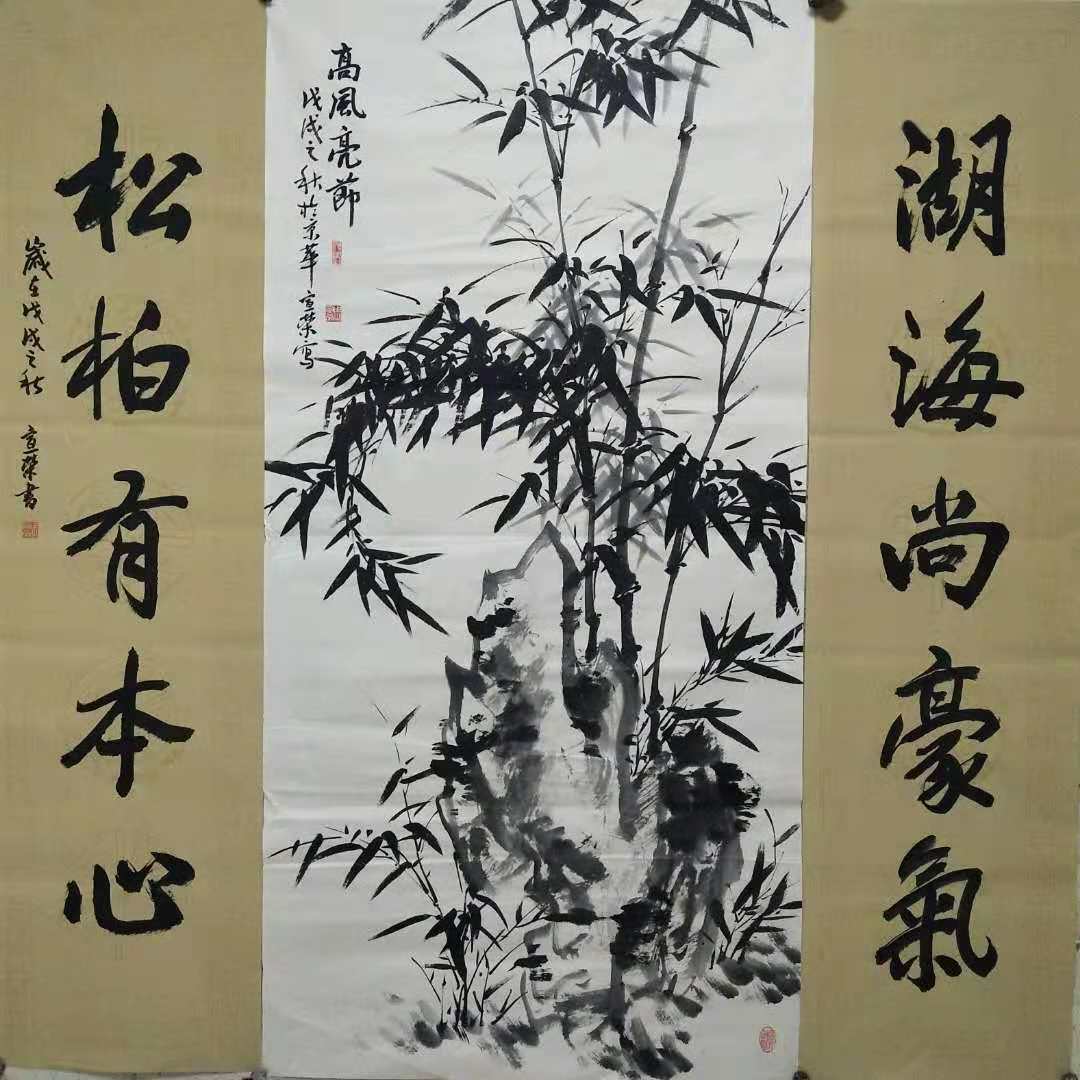 湖海尚豪氣
高風亮節
戊戌之秋於京華宣榮寫
松柏有本心
歲在戊戌之秋 宣榮書